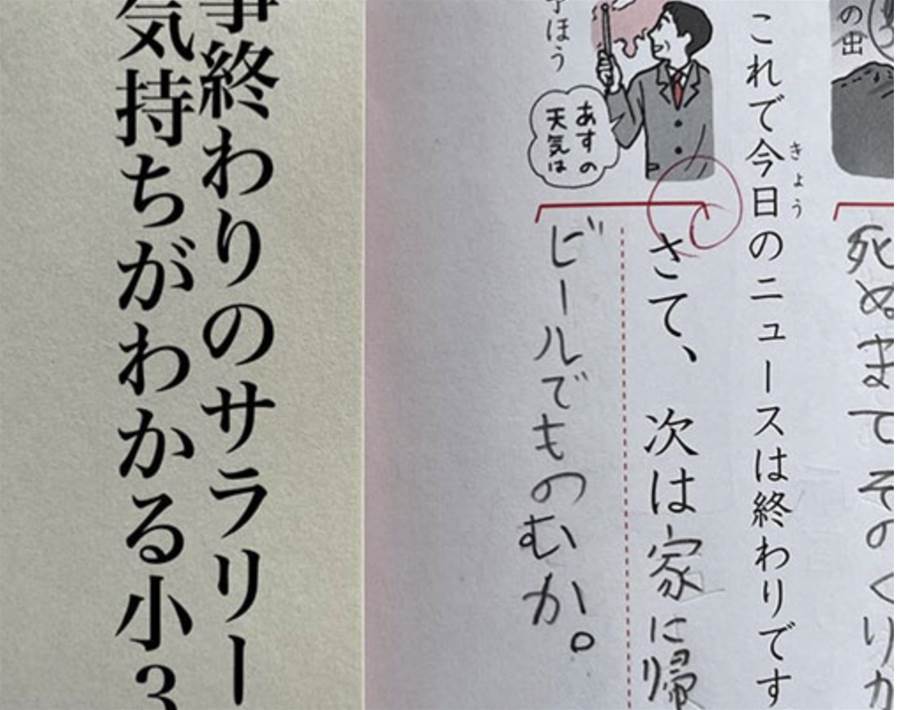 の出
死ぬまてそのくりか
これで今日のニュースは終わりです
きょう
ほう
あすの
天気は
さて、次は家に帰
ビールでものむか。
事終わりのサラリー
気持ちがわかる小3